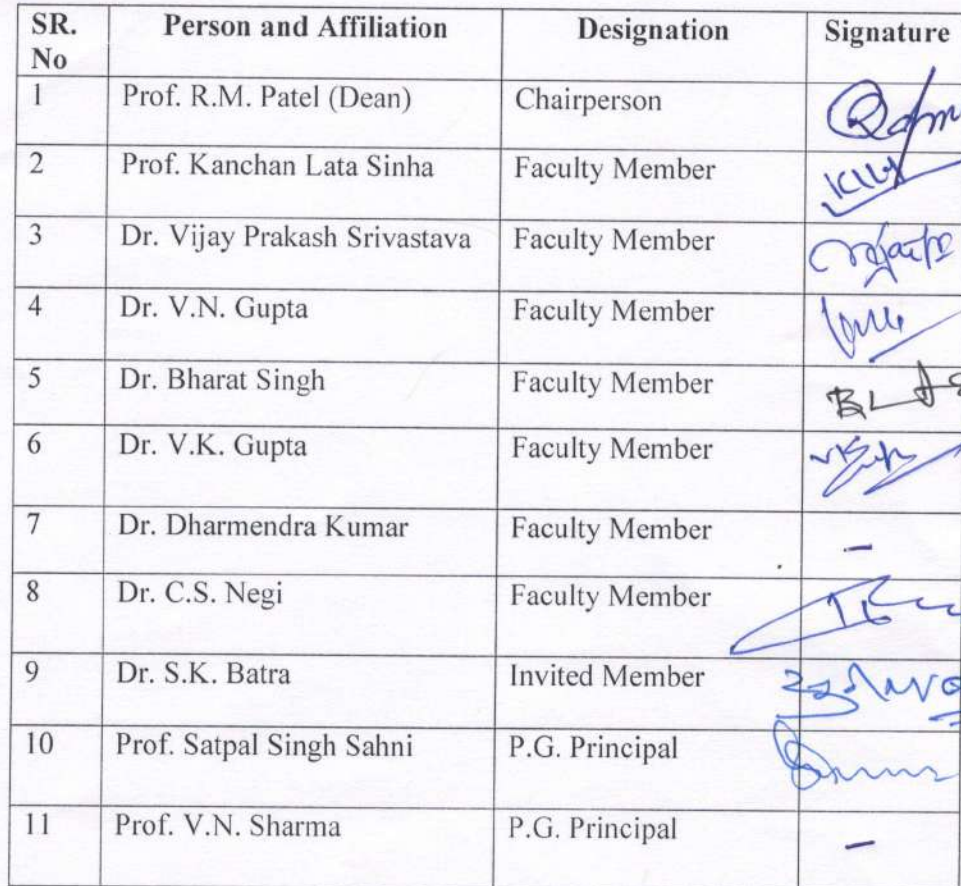 SR. No Person and Affiliation Designation Signature
1 Prof. R.M. Patel (Dean) Chairperson
2 Prof. Kanchan Lata Sinha Faculty Member
3 Dr. Vijay Prakash Srivastava Faculty Member
4 Dr. V.N. Gupta Faculty Member
5 Dr. Bharat Singh Faculty Member
6 Dr. V.K. Gupta Faculty Member
7 Dr. Dharmendra Kumar Faculty Member -
8 Dr. C.S. Negi Faculty Member
9 Dr. S.K. Batra Invited Member
10 Prof. Satpal Singh Sahni P.G. Principal
11 Prof. V.N. Sharma P.G. Principal -